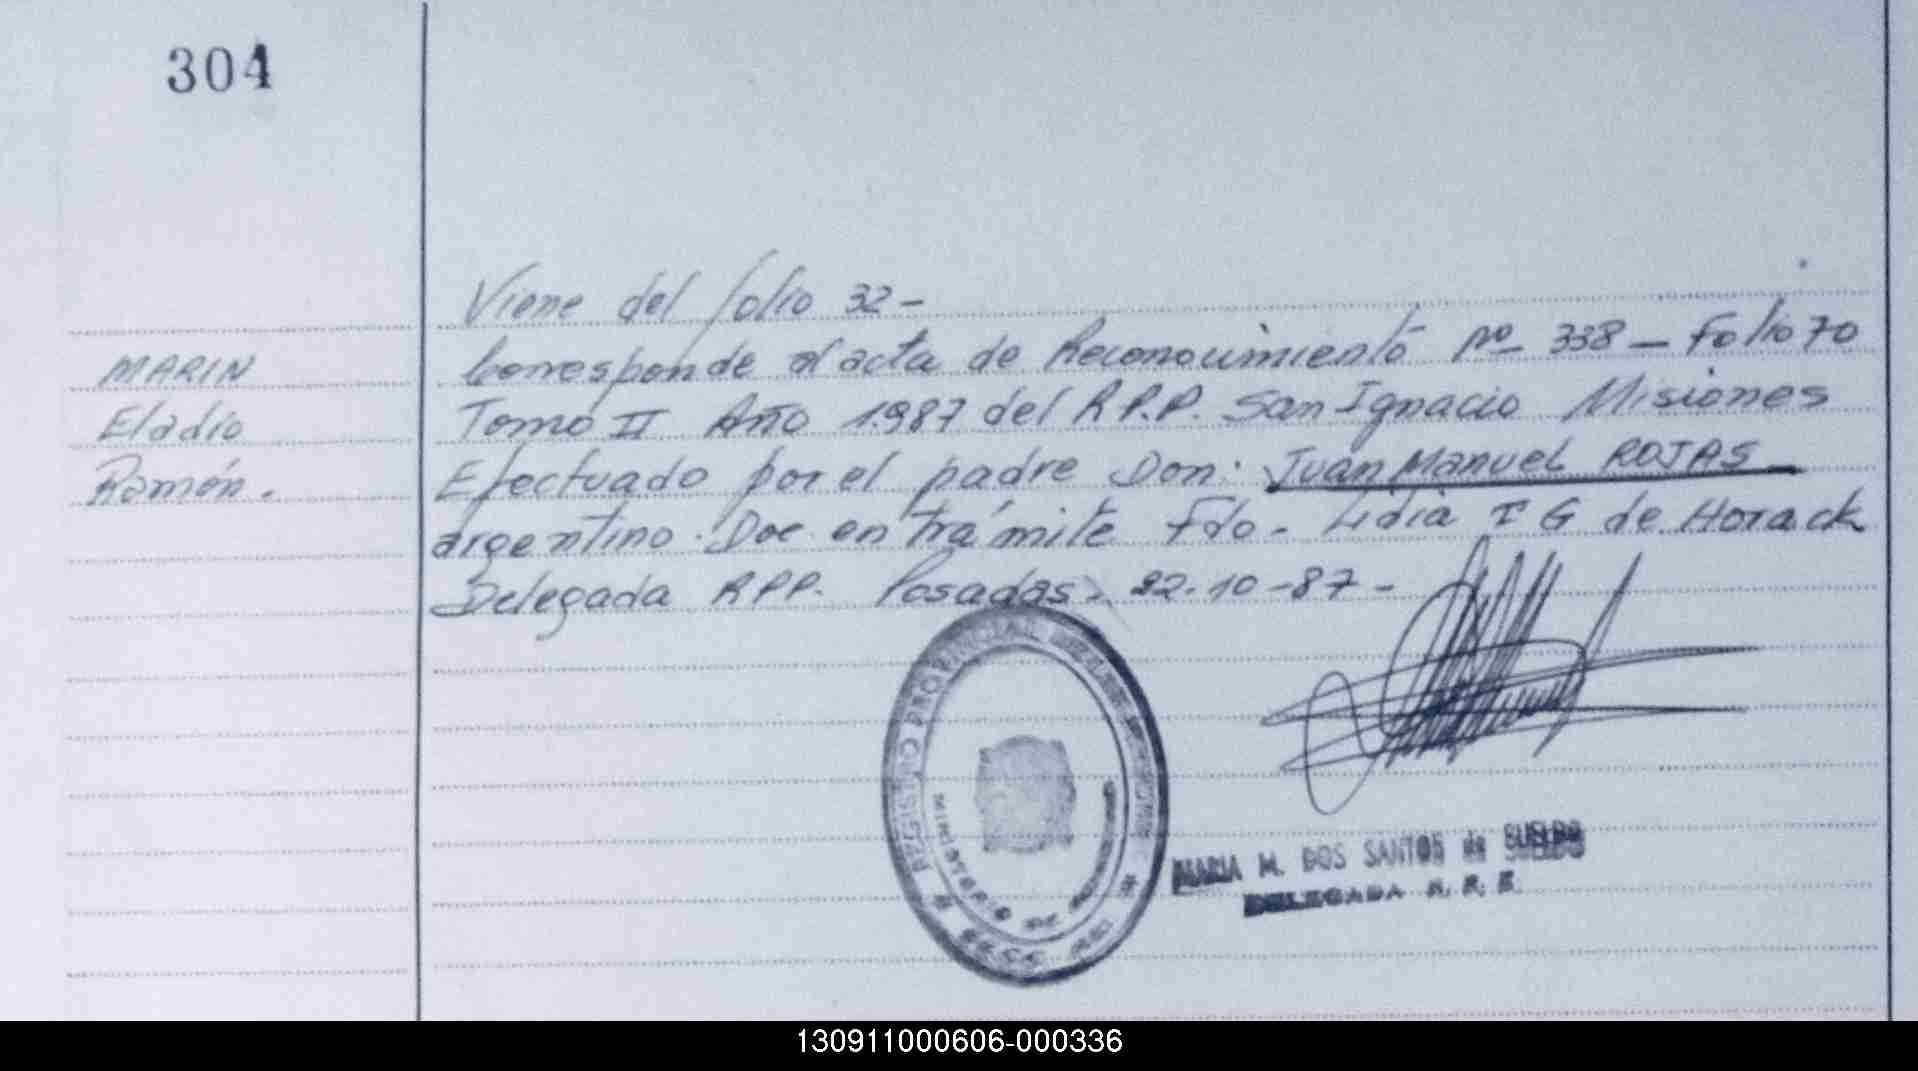 304
Viene del folio 32-
MARIN
Eladio
Ramón.
Corresponde al acta de Reconocimiento Nº 338 - Folio 70
Tomo II Año 1987 del R.P.P. San Ignacio Misiones
Efectuado por el padre Don: Juan Manuel ROJAS
argentino. Doc en trámite Fdo- Lidia I G de Horack
Delegada RPP. Posadas. 22-10-87-
REGISTRO PROVINCIAL DE LAS PERSONAS
MINISTERIO DE
MARIA M. DOS SANTOS de SUELDO
DELEGADA R. P. P.
130911000606-000336